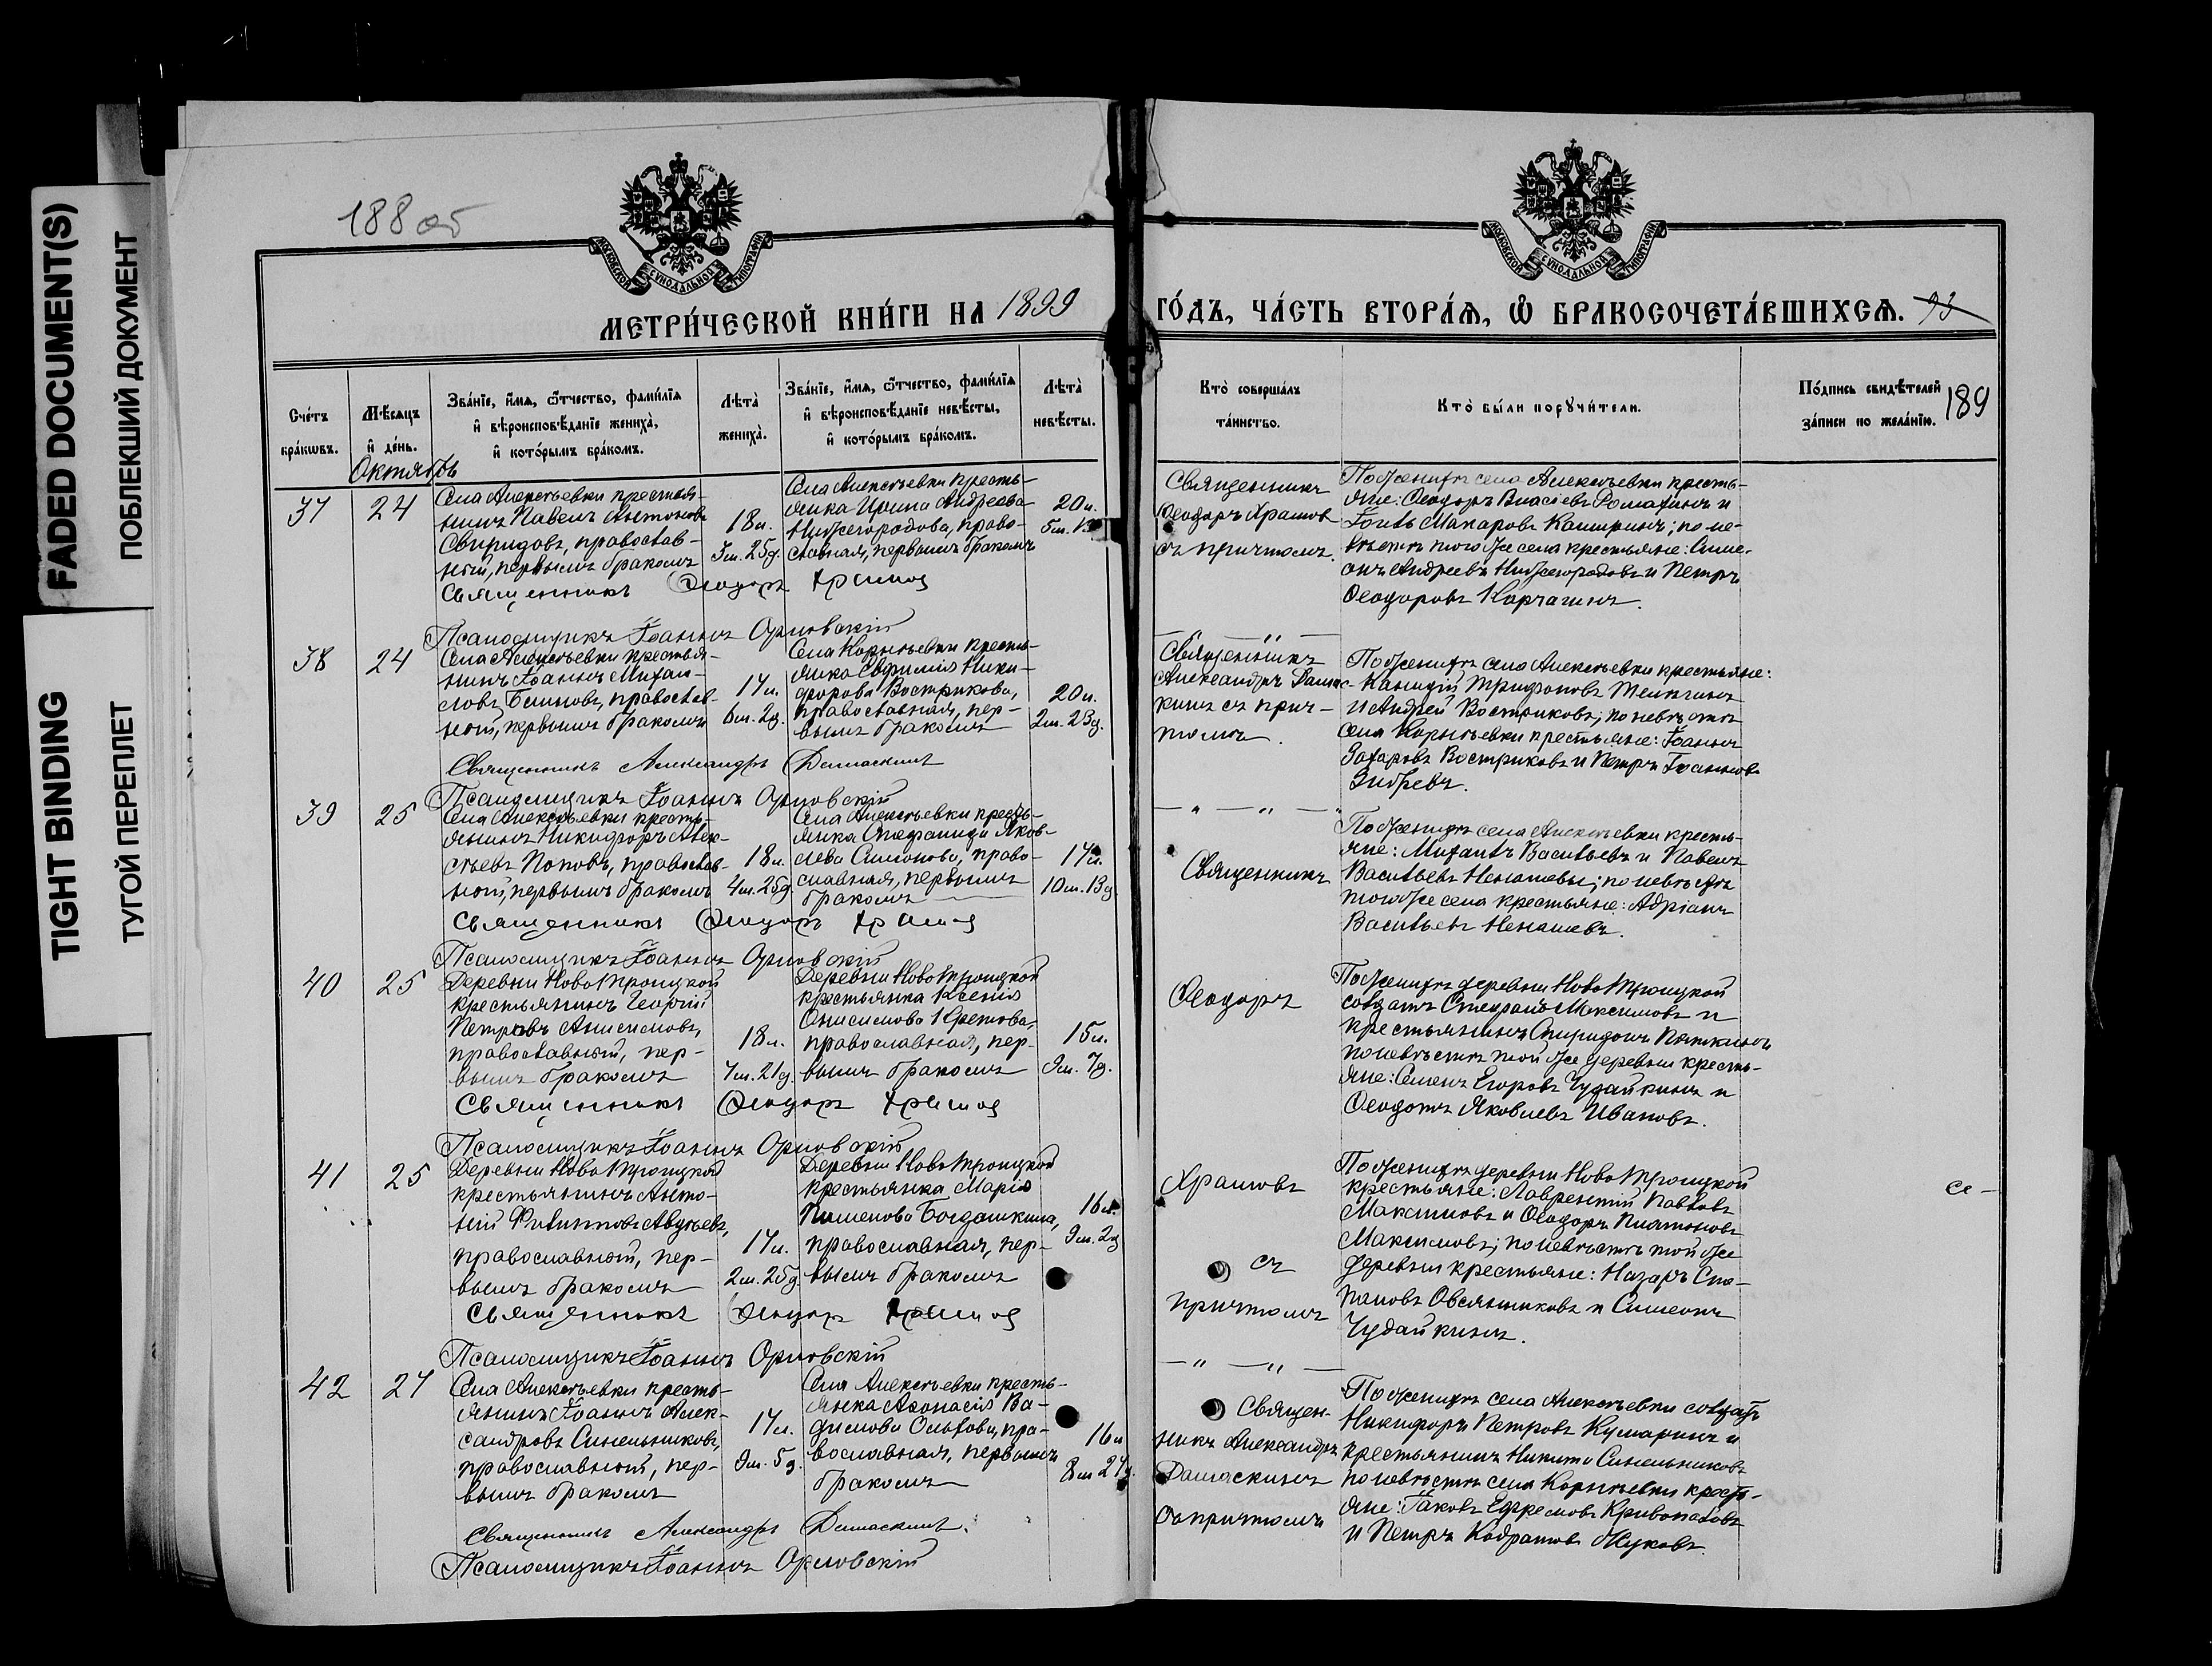 FADED DOCUMENT(S)
ПОБЛЕКШИЙ ДОКУМЕНТ
TIGHT BINDING
ТУГОЙ ПЕРЕПЛЕТ
188 об
МОСКОВСКОЙ СѴНОДАЛЬНОЙ ТИПОГРАФІИ
МОСКОВСКОЙ СѴНОДАЛЬНОЙ ТИПОГРАФІИ
МЕТРИ́ЧЕСКОЙ КНИ́ГИ НА 1899 ГО́ДЪ, ЧА́СТЬ ВТОРА́Ѧ, Ѽ БРАКОСОЧЕТА́ВШИХСѦ. 93
Сче́тъ
бра́кѡвъ.
Мѣ́сѧцъ
и҆ де́нь.
Зва́нїе, и҆́мѧ, ѻ҆́тчество, фами́лїѧ
и҆ вѣроисповѣ́данїе жениха̀,
и҆ кото́рымъ бра́комъ.
Лѣта̀
жениха̀.
Зва́нїе, и҆́мѧ, ѻ҆́тчество, фами́лїѧ
и҆ вѣроисповѣ́данїе невѣ́сты,
и҆ кото́рымъ бра́комъ.
Лѣта̀
невѣ́сты.
Кто̀ соверша́лъ
та́инство.
Кто̀ бы́ли порꙋчи́тели.
По́дпись свидѣ́телей
за́писи по жела́нїю.
189
Октябрь
37
24
Села Алексѣевки крестья-
нинъ Павелъ Антоновъ
Свиридовъ, православ-
ный, первымъ бракомъ
18 л.
3 м. 25 д.
Села Алексѣевки кресть-
янка Ирина Андреева
Нижегородова, право-
славная, первымъ бракомъ
20 л.
5 м.
Священникъ
Ѳеодоръ Храмовъ
съ причтомъ.
По женихѣ села Алексѣевки кресть-
яне: Ѳеодоръ Власіевъ Ромахинъ и
Іоиль Макаровъ Каширинъ; по не-
вѣстѣ того же села крестьяне: Симе-
онъ Андреевъ Нижегородовъ и Петръ
Ѳеодоровъ Карчагинъ.
Священникъ Ѳеодоръ Храмов
Псаломщикъ Іоаннъ Орловскій
38
24
Села Алексѣевки крестья-
нинъ Іоаннъ Михаи-
ловъ Блиновъ, православ-
ный, первымъ бракомъ
17 л.
6 м. 2 д.
Села Корнѣевки кресть-
янка Евфимія Ники-
форова Вострикова,
православная, пер-
вымъ бракомъ
20 л.
2 м. 23 д.
Священникъ
Александръ Дамас-
кинъ съ прич-
томъ.
По женихѣ села Алексѣевки крестьяне:
Трифоновъ
и Андрей Востриковъ; по невѣстѣ
села Корнѣевки крестьяне: Іоаннъ
Захаровъ Востриковъ и Петръ Іоанновъ
Священникъ Александръ Дамаскинъ
Псаломщикъ Іоаннъ Орловскій
39
25
Села Алексѣевки кресть-
янинъ Никифоръ Алек-
сѣевъ Поповъ, православ-
ный, первымъ бракомъ
18 л.
4 м. 25 д.
Села Алексѣевки кресть-
янка Стефанида Яков-
лева Симонова, право-
славная, первымъ
бракомъ
17 л.
10 м. 13 д.
Священникъ
По женихѣ села Алексѣевки кресть-
яне: Михаилъ Васильевъ и Павелъ
Васильевъ Ненашевы; по невѣстѣ
того же села крестьяне: Адріанъ
Васильевъ Ненашевъ.
Священникъ Ѳеодоръ Храмов
Псаломщикъ Іоаннъ Орловскій
40
25
Деревни Ново Троицкой
крестьянинъ Георгій
Петровъ Анисимовъ,
православный, пер-
вымъ бракомъ
18 л.
7 м. 21 д.
Деревни Ново Троицкой
крестьянка Ксенія
Онисимова Кретова,
православная, пер-
вымъ бракомъ
15 л.
9 м. 7 д.
Ѳеодоръ
По женихѣ деревни Ново Троицкой
солдатъ Стефанъ Максимовъ и
крестьянинъ Спиридонъ
по невѣстѣ той же деревни кресть-
яне: Семенъ Егоровъ Чудайкинъ и
Ѳеодотъ Яковлевъ Ивановъ.
Священникъ Ѳеодоръ Храмов
Псаломщикъ Іоаннъ Орловскій
41
25
Деревни Ново Троицкой
крестьянинъ Анто-
ній Филиповъ Авдѣевъ,
православный, пер-
вымъ бракомъ
17 л.
2 м. 25 д.
Деревни Ново Троицкой
крестьянка Марія
Пименова Богдашкина,
православная, пер-
вымъ бракомъ
16 л.
9 м. 2 д.
Храмовъ
съ
причтомъ
По женихѣ деревни Ново Троицкой
крестьяне: Лаврентій Павловъ
Максимовъ и Ѳеодоръ Платоновъ
Максимовъ; по невѣстѣ той же
деревни крестьяне: Назаръ Сте-
пановъ Овсянниковъ и Симеонъ
Чудайкинъ.
Священникъ Ѳеодоръ Храмов
Псаломщикъ Іоаннъ Орловскій
42
27
Села Алексѣевки кресть-
янинъ Іоаннъ Алек-
сандровъ Синельниковъ,
православный, пер-
вымъ бракомъ
17 л.
9 м. 5 д.
Села Алексѣевки кресть-
янка Аѳонасія Ва-
димова Ольхова, пра-
вославная, первымъ
бракомъ
16 л.
8 м 27 д.
Священ-
никъ Александръ
Дамаскинъ
съ причтомъ
По женихѣ села Алексѣевки солдатъ
Никифоръ Петровъ Кумаринъ и
крестьянинъ Никита Синельниковъ
по невѣстѣ села Корнѣевки кресть-
яне: Іаковъ Ефремовъ Кривопаловъ
и Петръ Кодратовъ Жуковъ.
Священникъ Александръ Дамаскинъ.
Псаломщикъ Іоаннъ Орловскій